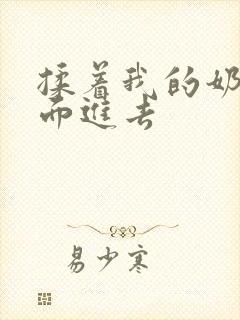 揉着我的奶
而進去
易少寒